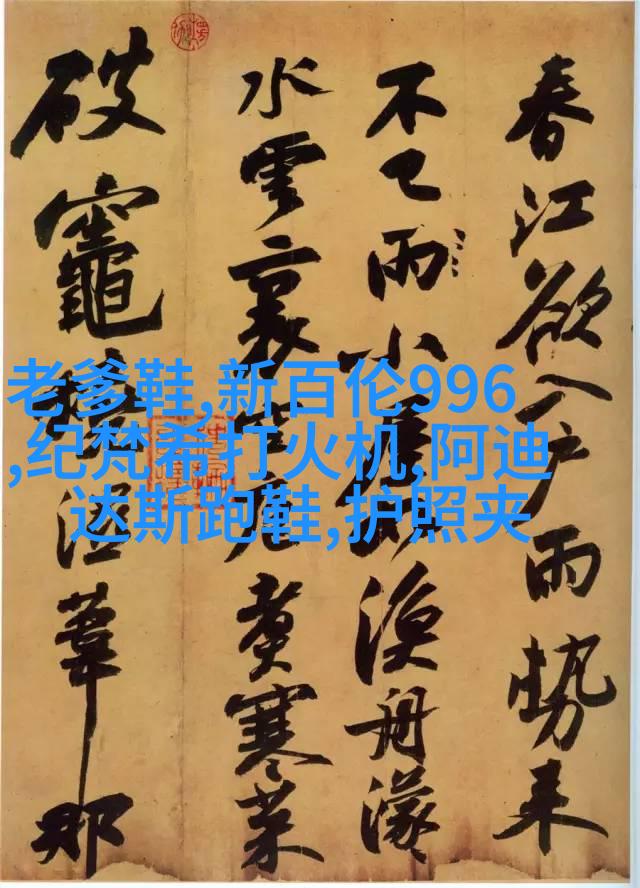 老爹鞋,新百伦996
,纪梵希打火机,阿迪
达斯跑鞋,护照夹
春江欲入户雨勢来
不已雨小屋漁舟濛
水雲裏空庖煮寒菜
破竈湿葦那